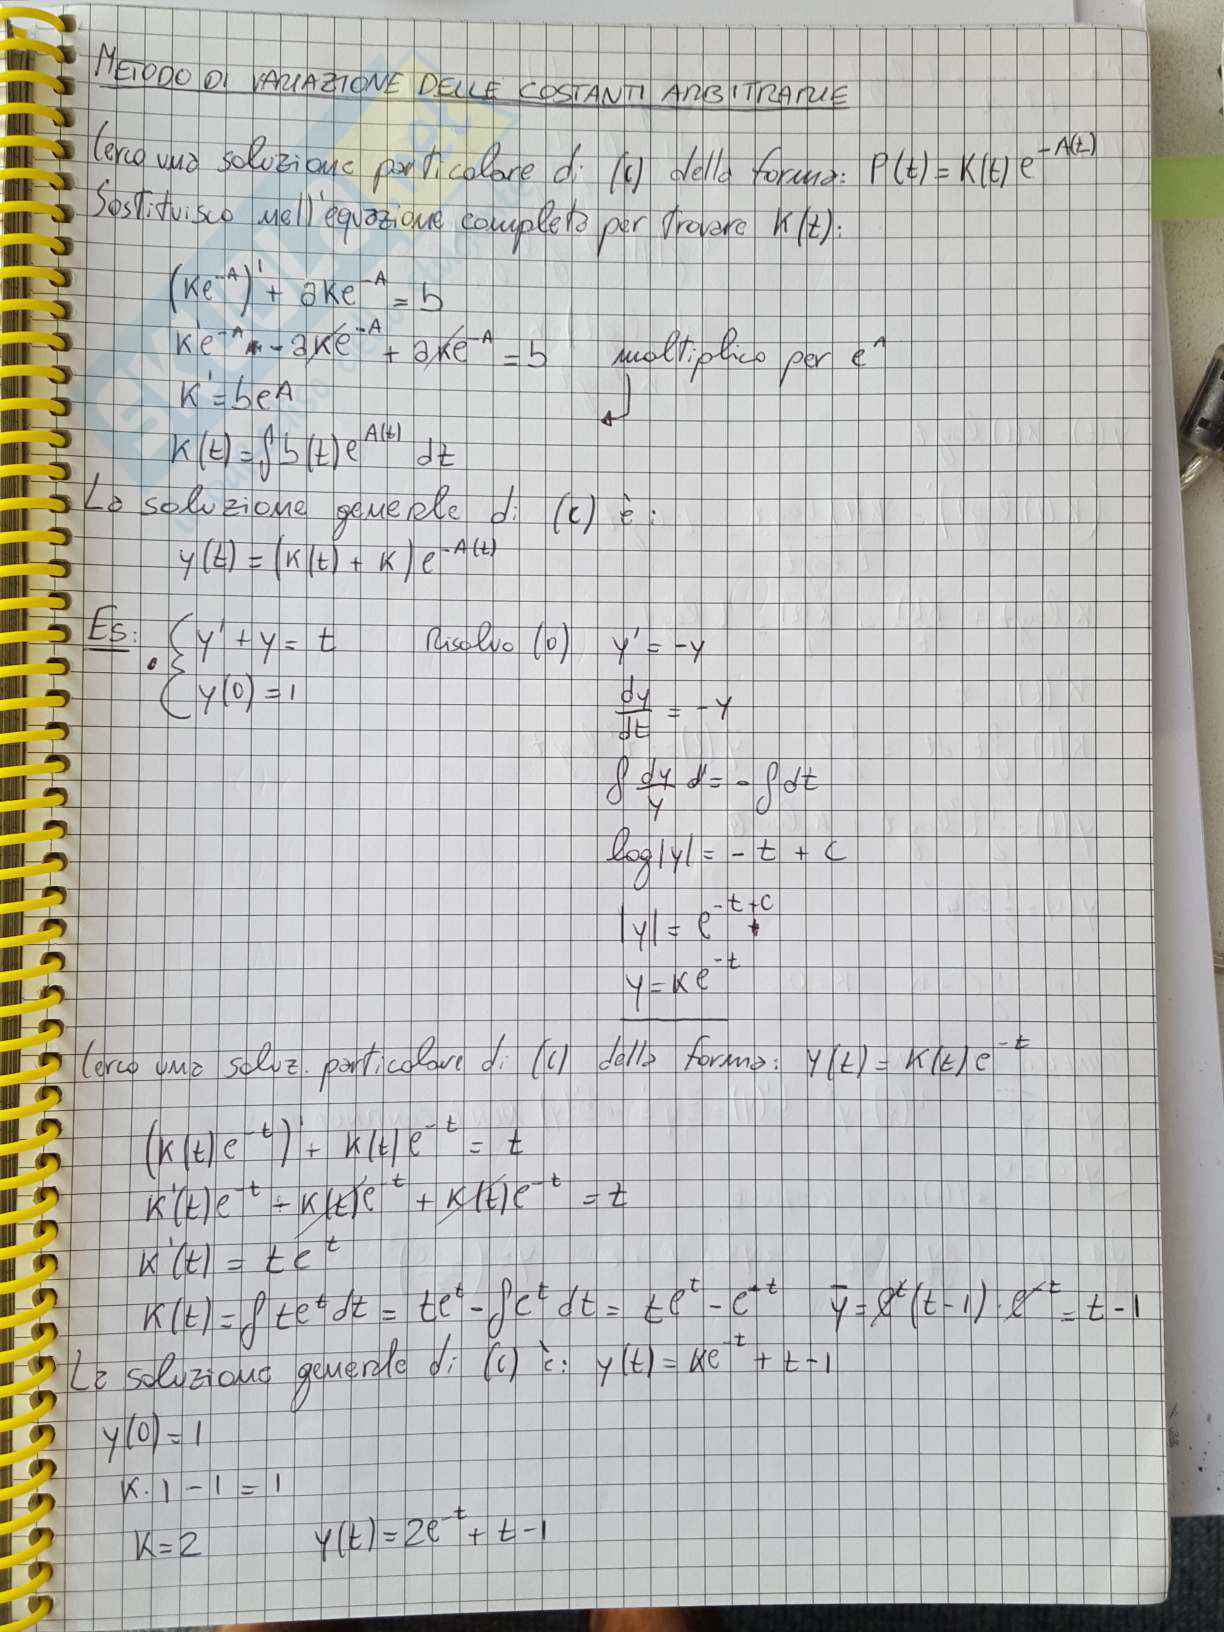 METODO DI VARIAZIONE DELLE COSTANTI ARBITRARIE
Cerco una soluzione particolare di (c) della forma: P(t) = K(t) e^{-A(t)}
Sostituisco nell'equazione completa per trovare K(t):
(Ke^{-A})' + aKe^{-A} = b
K'e^{-A} - aKe^{-A} + aKe^{-A} = b moltiplico per e^A
K' = beA
K(t) = ∫b(t)e^{A(t)} dt
La soluzione generale di (c) è:
y(t) = (K(t) + K) e^{-A(t)}
Es: { y' + y = t Risolvo (0) y' = -y
y(0) = 1
dy/dt = -y
∫ dy/y = -∫dt
log|y| = -t + c
|y| = e^{-t+c}
y = Ke^{-t}
Cerco una soluz. particolare di (c) della forma: y(t) = K(t)e^{-t}
(K(t)e^{-t})' + K(t)e^{-t} = t
K'(t)e^{-t} - K(t)e^{-t} + K(t)e^{-t} = t
K'(t) = te^t
K(t) = ∫te^t dt = te^t - ∫e^t dt = te^t - e^t ȳ = e^t(t-1)·e^{-t} = t-1
La soluzione generale di (c) è: y(t) = Ke^{-t} + t-1
y(0) = 1
K·1 - 1 = 1
K = 2 y(t) = 2e^{-t} + t - 1